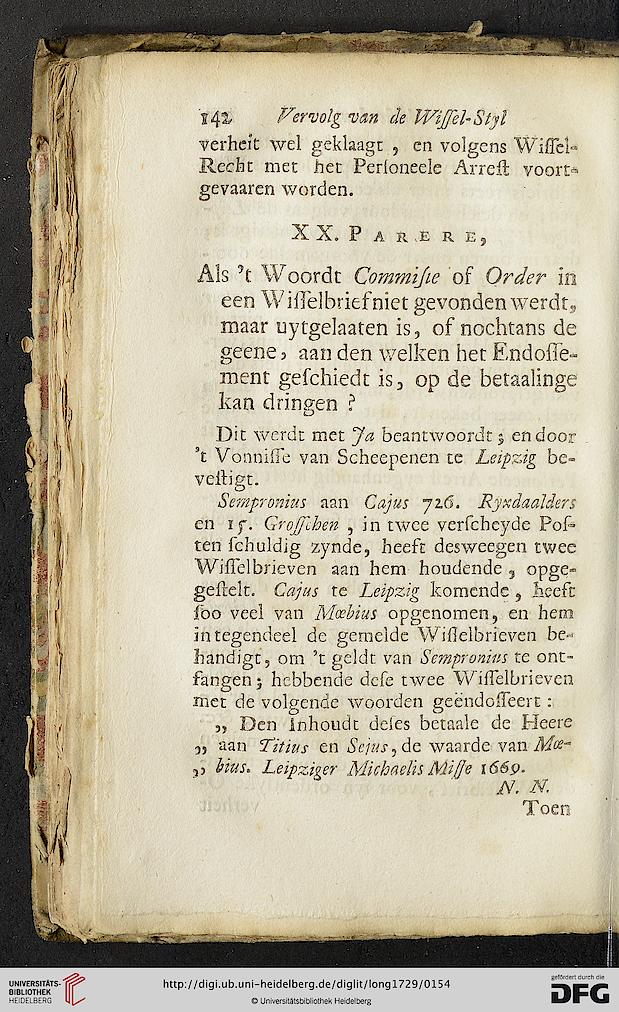 142 Vervolg van de Wiſſel-Styl
verheit wel geklaagt , en volgens Wiſſel-
Recht met het Perſoneele Arreſt voort-
gevaaren worden.
XX. PARERE,
Als 't Woordt Commiſſie of Order in
een Wiſſelbrief niet gevonden werdt,
maar uytgelaaten is, of nochtans de
geene, aan den welken het Endoſſe-
ment geſchiedt is, op de betaalinge
kan dringen ?
Dit werdt met Ja beantwoordt; en door
't Vonniſſe van Scheepenen te Leipzig be-
veſtigt.
Sempronius aan Cajus 726. Ryxdaalders
en 15. Groſſchen , in twee verſcheyde Poſ-
ten ſchuldig zynde, heeft desweegen twee
Wiſſelbrieven aan hem houdende, opge-
geſtelt. Cajus te Leipzig komende, heeft
ſoo veel van Mœbius opgenomen, en hem
in tegendeel de gemelde Wiſſelbrieven be-
handigt, om 't geldt van Sempronius te ont-
fangen; hebbende deſe twee Wiſſelbrieven
met de volgende woorden geëndoſſeert:
„ Den inhoudt deſes betaale de Heere
„ aan Titius en Sejus, de waarde van Mœ-
„ bius. Leipziger Michaelis Miſſe 1669.
N. N.
Toen
UNIVERSITÄTS-
BIBLIOTHEK
HEIDELBERG
http://digi.ub.uni-heidelberg.de/diglit/long1729/0154
© Universitätsbibliothek Heidelberg
gefördert durch die
DFG